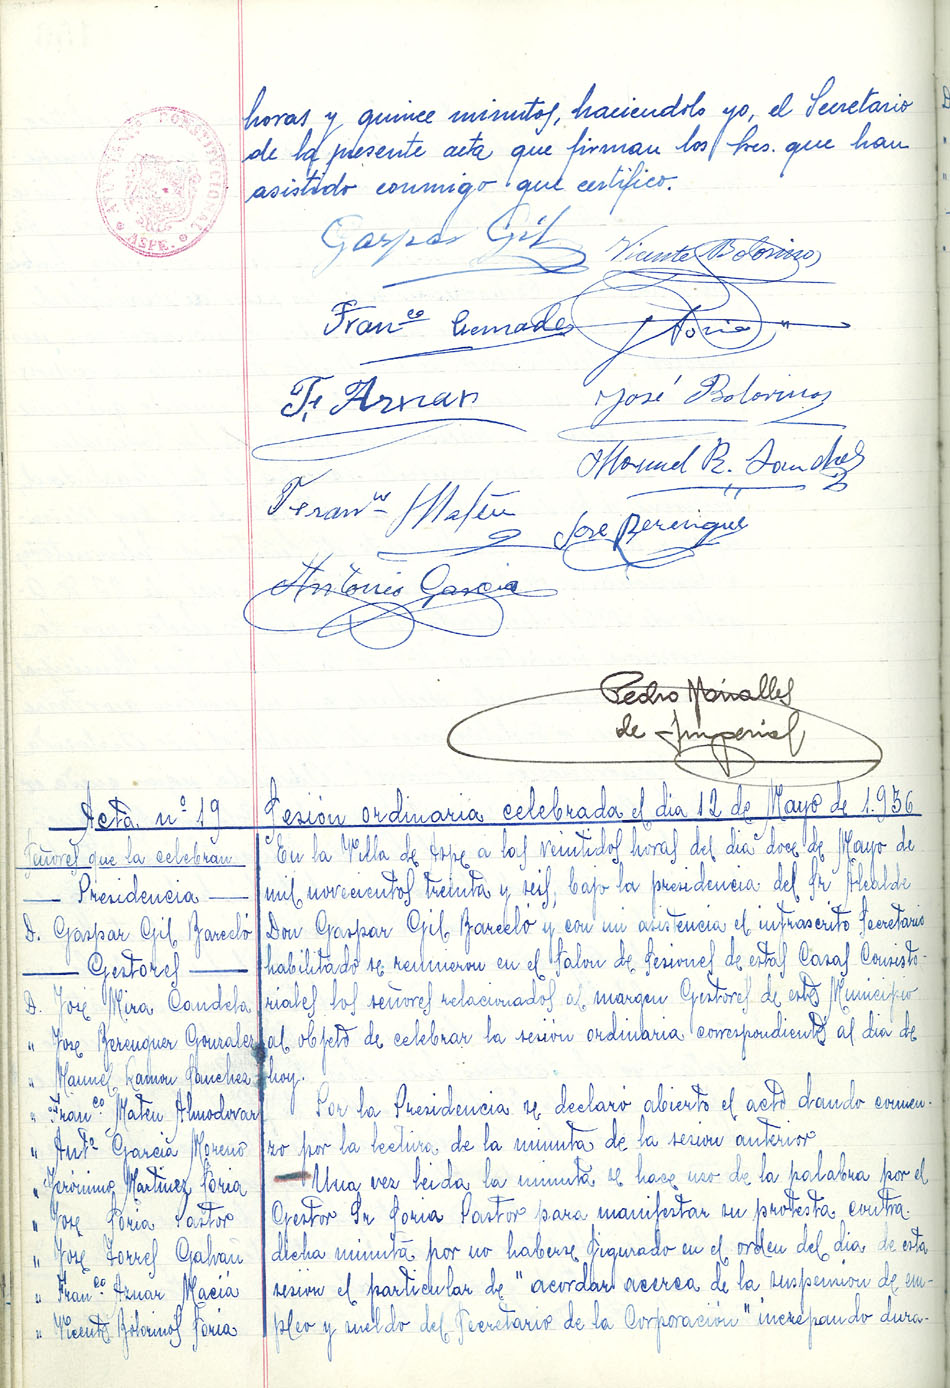 horas y quince minutos, haciendolo yo, el Secretario
de la presente acta que firman los Sres. que han
asistido conmigo que certifico.
CONSTITUCIONAL
* ASPE. *
Gaspar Gil
Vicente Botorinos
Fran.co Cremades
J Soria
F. Aznar
José Botorinos
Manuel R. Sanchez
Fran.co Mateu
Jose Berenguer
Antonio Garcia
Pedro Miralles
de Imperial
Acta nº 19
Sesión ordinaria celebrada el dia 12 de Mayo de 1.936
Señores que la celebran
Presidencia
D. Gaspar Gil Barceló
Gestores
D. Jose Mira Candela
" Jose Berenguer Gonzalez
" Manuel Ramon Sanchez
" Fran.co Mateu Almodovar
" Ant.o Garcia Moreno
" Jerónimo Martinez Soria
" Jose Soria Pastor
" Jose Torres Galvañ
" Fran.co Aznar Maciá
" Vicente Botorinos Soria
En la Villa de Aspe a las veintidos horas del dia doce de Mayo de
mil novecientos treinta y seis, bajo la presidencia del Sr Alcalde
Don Gaspar Gil Barceló y con mi asistencia el infrascrito Secretario
habilitado se reunieron en el Salon de Sesiones de estas Casas Consisto-
riales los señores relacionados al margen Gestores de este Municipio
al objeto de celebrar la sesión ordinaria correspondiente al dia de
hoy.
Por la Presidencia se declaró abierto el acto dando comen-
zo por la lectura de la minuta de la sesion anterior
Una vez leida la minuta se hace uso de la palabra por el
Gestor Sr Soria Pastor para manifestar su protesta contra
dicha minuta por no haberse figurado en el orden del dia de esta
sesion el particular de "acordar acerca de la suspension de em-
pleo y sueldo del Secretario de la Corporación" increpando dura-